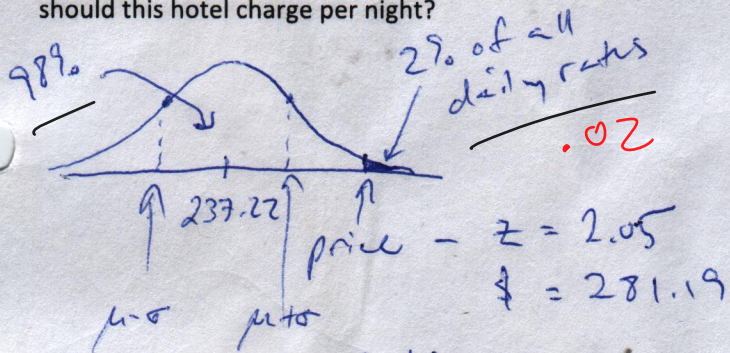 should this hotel charge per night?
98%
2% of all
daily rates
.02
237.22
price - z = 2.05
$ = 281.19
μ-σ
μ+σ